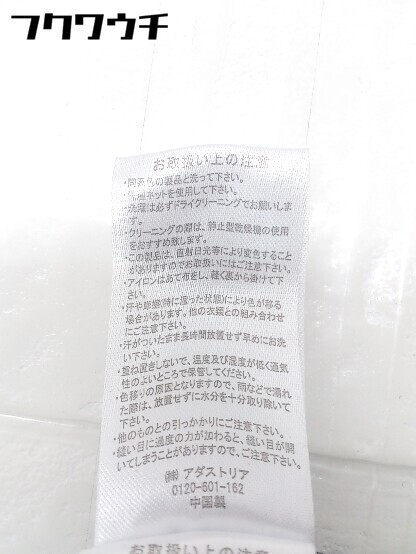 フクワウチ
お取扱い上の注意
・同系色の製品と洗って下さい。
・洗濯ネットを使用して下さい。
・洗濯は必ずドライクリーニングでお願いしま
す。
・クリーニングの際は、静止型乾燥機の使用
をおすすめ致します。
・この製品は、直射日光等により変色すること
がありますのでお取扱いにはご注意下さい。
・アイロンはあて布をし、軽く裏から掛けて下
さい。
・汗や摩擦(特に湿った状態)により色が移る
場合があります。他の衣類との組み合わせ
にご注意下さい。
・汗がついたまま長時間放置せず早めにお洗
い下さい。
・重ね置きしないで、温度及び湿度が低く通気
性のよいところで保管してください。
・色移りの原因となりますので、雨などで濡れ
た際は、放置せずに水分を十分取り除いて下
さい。
・他のものとの引っかかりにご注意下さい。
・縫い目に過度の力が加わると、縫い目が開
いてしまうことがありますので、ご注意下さい。
(株) アダストリア
0120-601-162
中国製
お取扱い上の注意